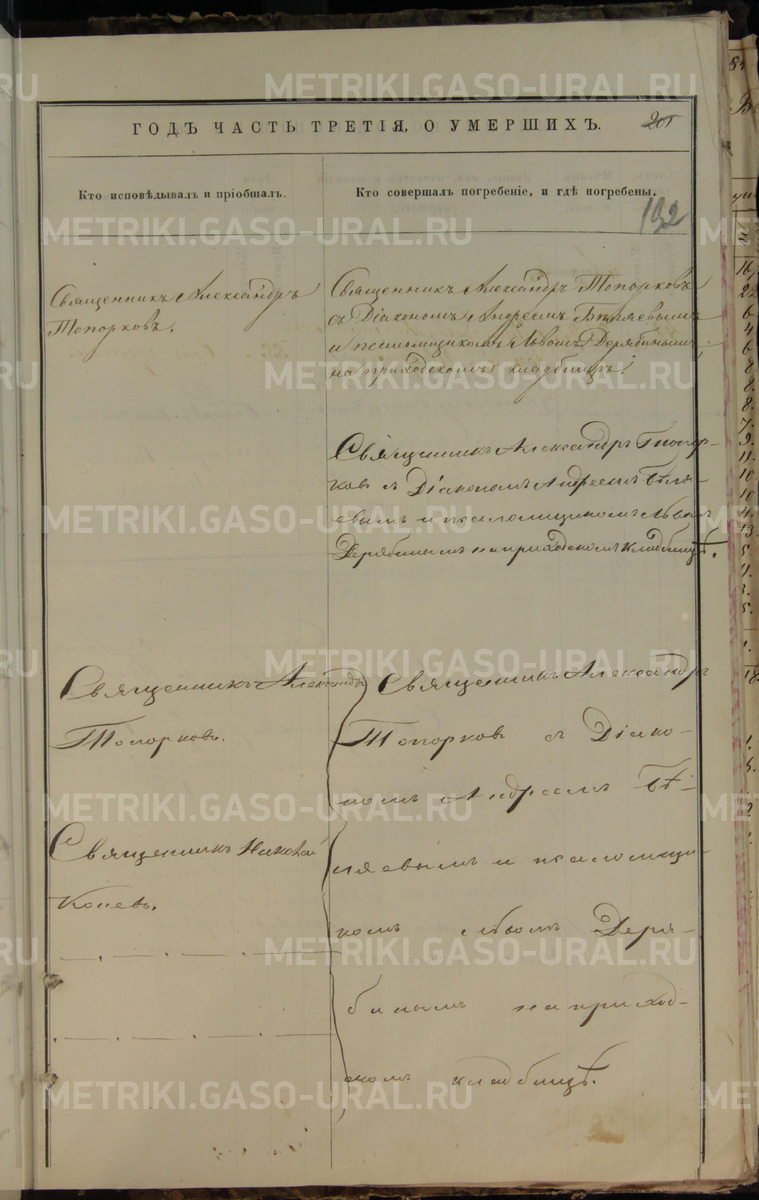 ГОДЪ ЧАСТЬ ТРЕТІЯ, О УМЕРШИХЪ.
Кто исповѣдывалъ и пріобщалъ.
Кто совершалъ погребеніе, и гдѣ погребены.
192
Священникъ Александръ
Топорковъ.
Священникъ Александръ Топорковъ
съ Діакономъ Андреемъ Бѣляевымъ
и псаломщикомъ Львомъ Дерябинымъ
на приходскомъ кладбищѣ.
Священникъ Александръ Топор-
ковъ съ Діакономъ Андреемъ Бѣля-
евымъ и псаломщикомъ Львомъ
Дерябинымъ на приходскомъ кладбищѣ.
Священникъ Александръ
Топорковъ.
Священникъ Николай
Конев.
Священникъ Александръ
Топорков съ Діако-
номъ Андреемъ Бѣ-
ляевымъ и псаломщи-
комъ Львомъ Деря-
бинымъ на приход-
скомъ кладбищѣ.
METRIKI.GASO-URAL.RU